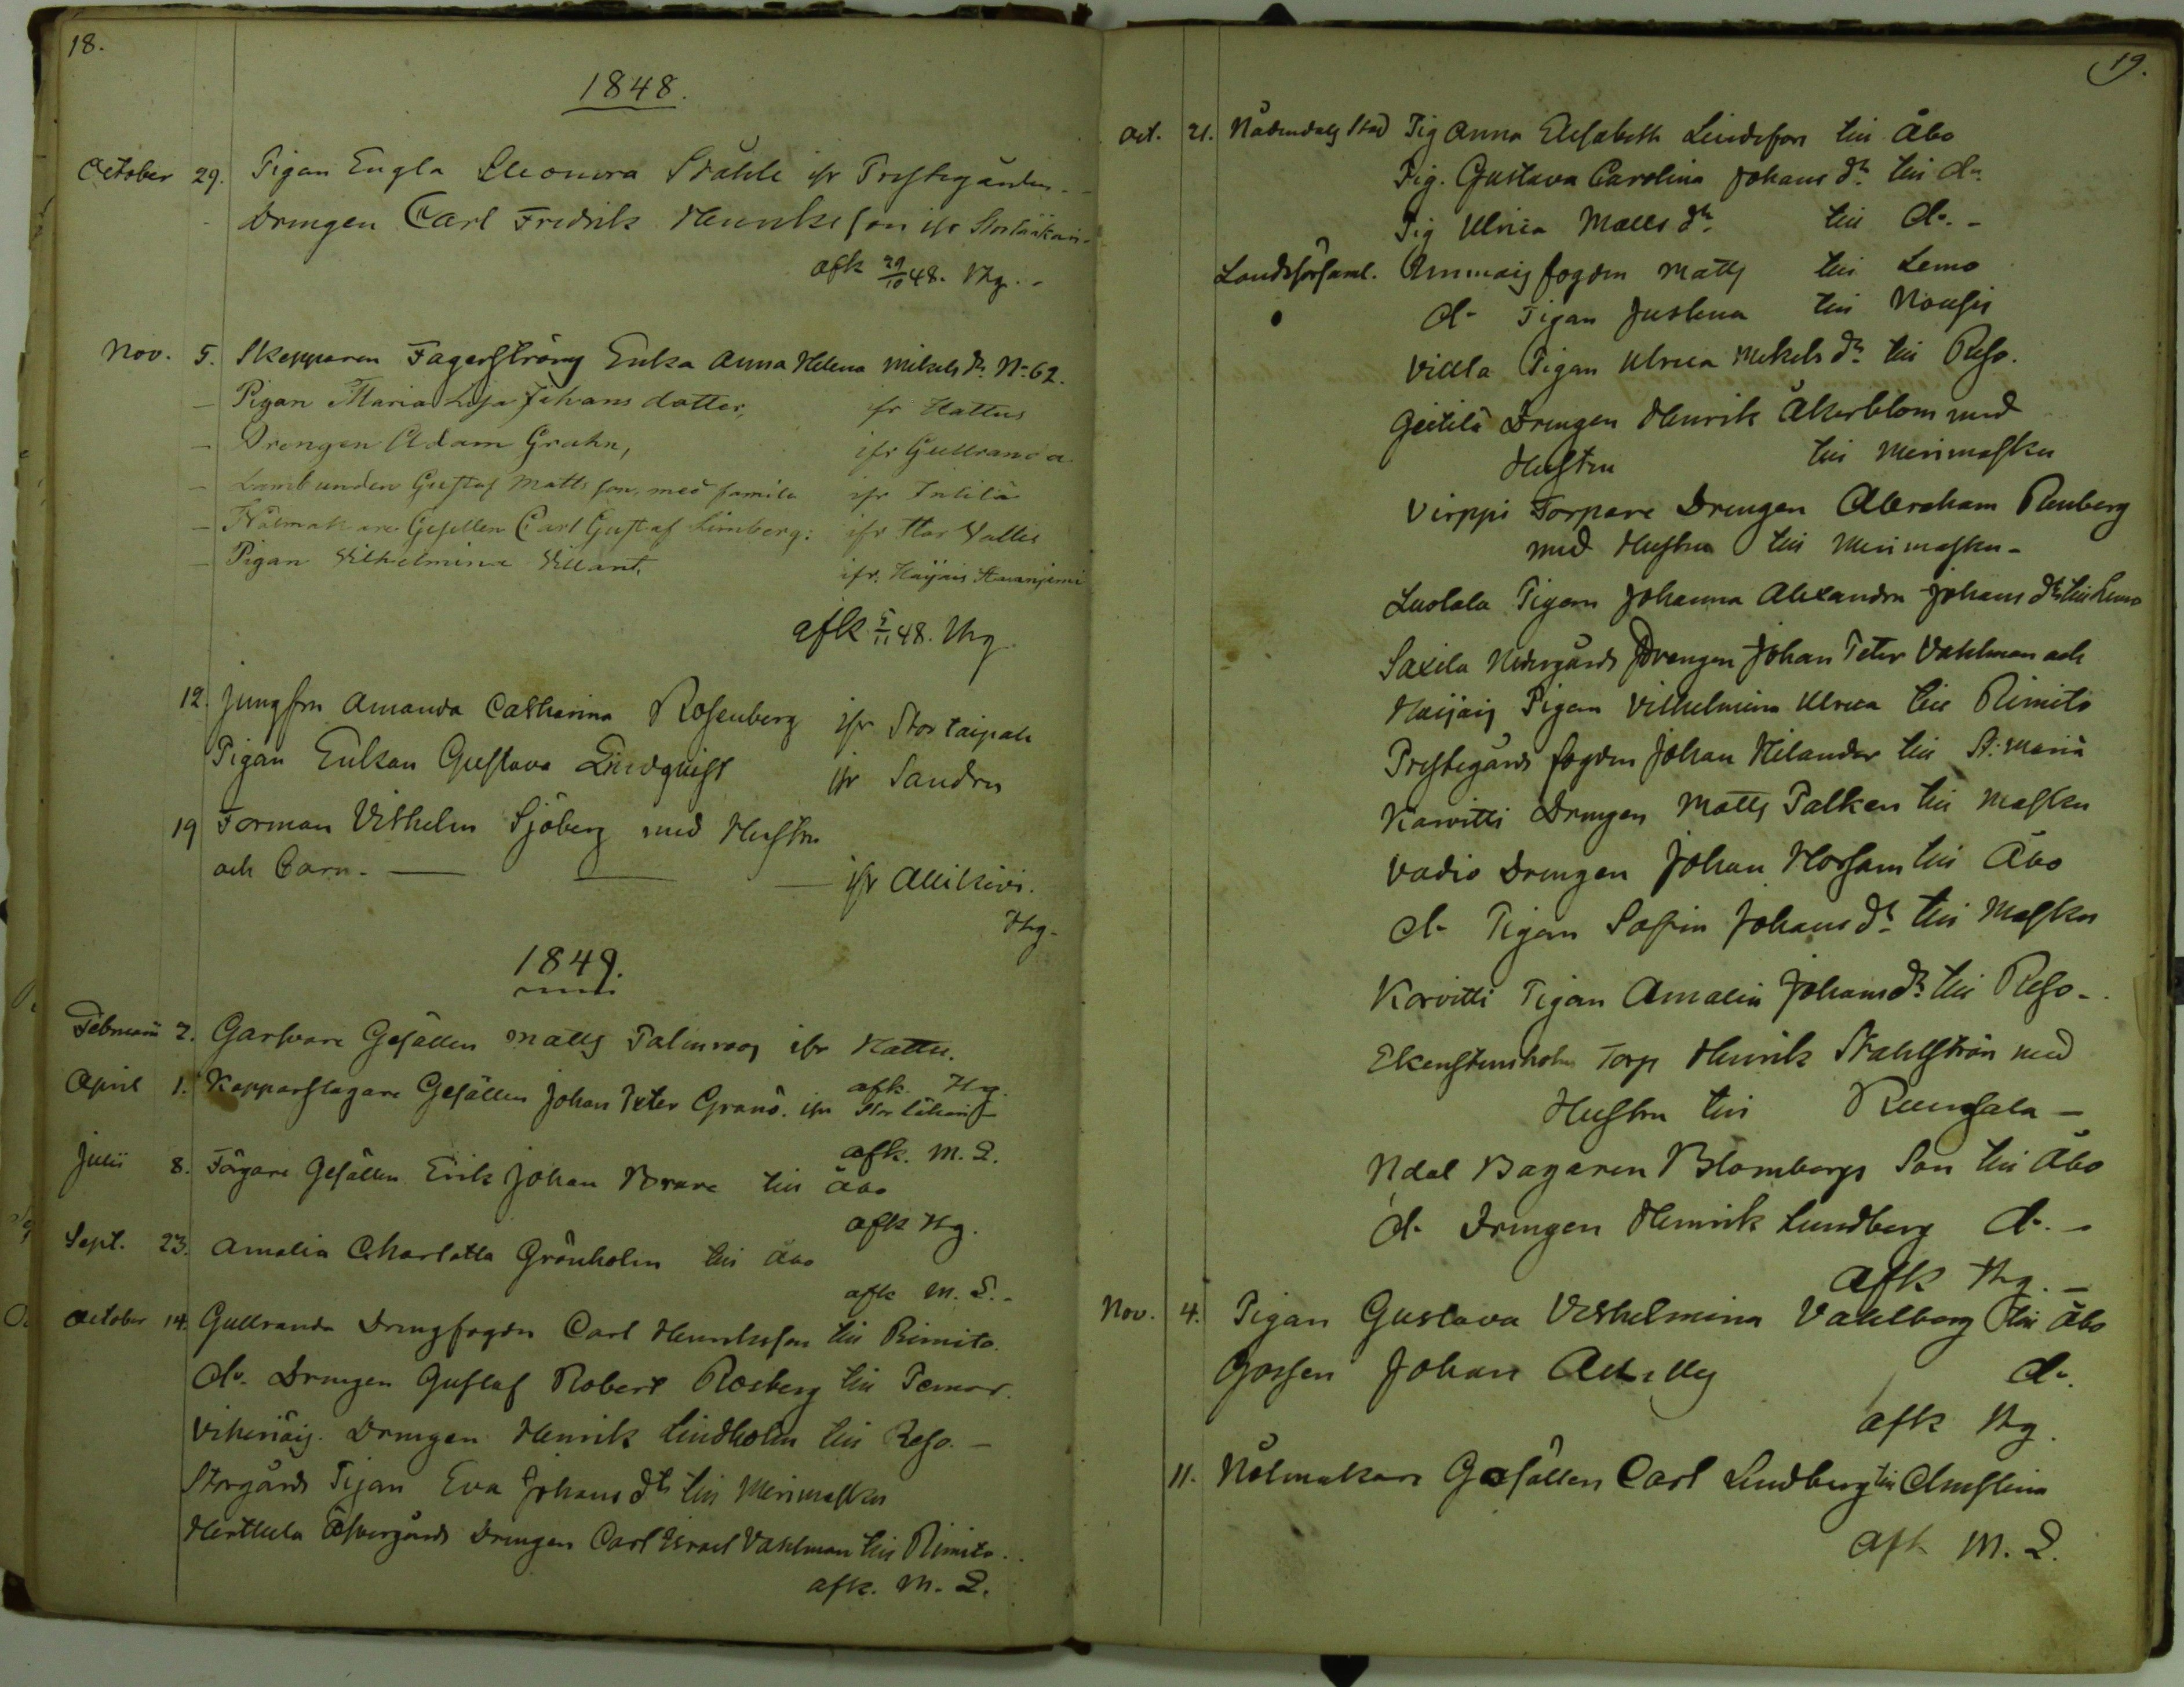 18.
1848.
October 29. Pigan Engla Eleonora Ståhle ifr Prestegården.
Drengen Carl Fredrik Henriksson ifr
afk 29/10 48. Hg.
Nov. 5. Skepparen Fagerströms Enka Anna Helena Mikels dr. No 62.
— Pigan Maria Lisa Johans dotter, ifr Hattus
— Drengen Adam Grahn, ifr Gullranda
— Gustaf Matts son, med famile ifr
— Nålmakare Gesellen Carl Gustaf Limberg: ifr Stor
— Pigan Vilhelmina Villant, ifr. Haijais
afk 5/11 48. Hg
12. Jungfru Amanda Catharina Rosenberg ifr Stor taipale
Pigan Enkan Gustava Lindquist ifr Sandra
19 Forman Vilhelm Sjöberg med Hustru
och Barn. — — — ifr Ailikivi.
Hg.
1849.
Februarii 2. Garfvare Gesällen Matts Palmroos ifr Hattu.
afk. Hg.
April 1. Kopparslagare Gesällen Johan Peter Granö. ifr
afk. M. L.
Julii 8. Färgare Gesällen Erik Johan Brare till Åbo
afk Hg.
Sept. 23. Amalia Charlotta Grönholm till Åbo
afk M. L.
October 14. Gullranda Drengfogden Carl Henriksson till Rimito.
do. Drengen Gustaf Robert Rosberg till Pemar.
Viheriäis. Drengen Henrik Lindholm till Reso. —
Storgårds Pigan Eva Johans dtr till Merimasku
Herttula Öfvergårds Drengen Carl Israel Vahlman till Rimito.
afk. M. L.
19.
Oct. 21. Nådendals Stad Pig Anna Elisabeth Lindfors till Åbo
Pig. Gustava Carolina Johans dr. till do
Pig Ulrica Matts dr. till do. -
Landsförsaml. Ammais fogden Matts till Lemo
do Pigan Justina till Nousis
Viilla Pigan Ulrica Mikels dr. till Reso.
Geitilä Drengen Henrik Åkerblom med
Hustru till Merimasku
Virppi Torpare Drengen Abraham Renberg
med Hustru till Merimasku -
Luolala Pigan Johanna Alexandra Johans dr till Lemo
Saxila Nedergårds Drengen Johan Peter Vahlman och
Haijais Pigan Vilhelmina Ulrica till Rimito
Prestegårds fogden Johan Hilander till St: Maria
Karvitti Drengen Matts Palken till Masku
Vadio Drengen Johan till Åbo
do Pigan Sofia Johans dr. till Masku
Karvitti Pigan Amalia Johans dr. till Reso -
Elkenstensholm Torp Henrik Stahlström med
Hustru till Runsala —
Ndal Bagaren Blombergs Son till Åbo
do Drengen Henrik Lundberg do. -
afk Hg. —
Nov. 4. Pigan Gustava Vilhelmina Vahlberg till Åbo
Gossen Johan do.
afk Hg.
11. Nålmakare Gesällen Carl Lindberg till
afk M. L.